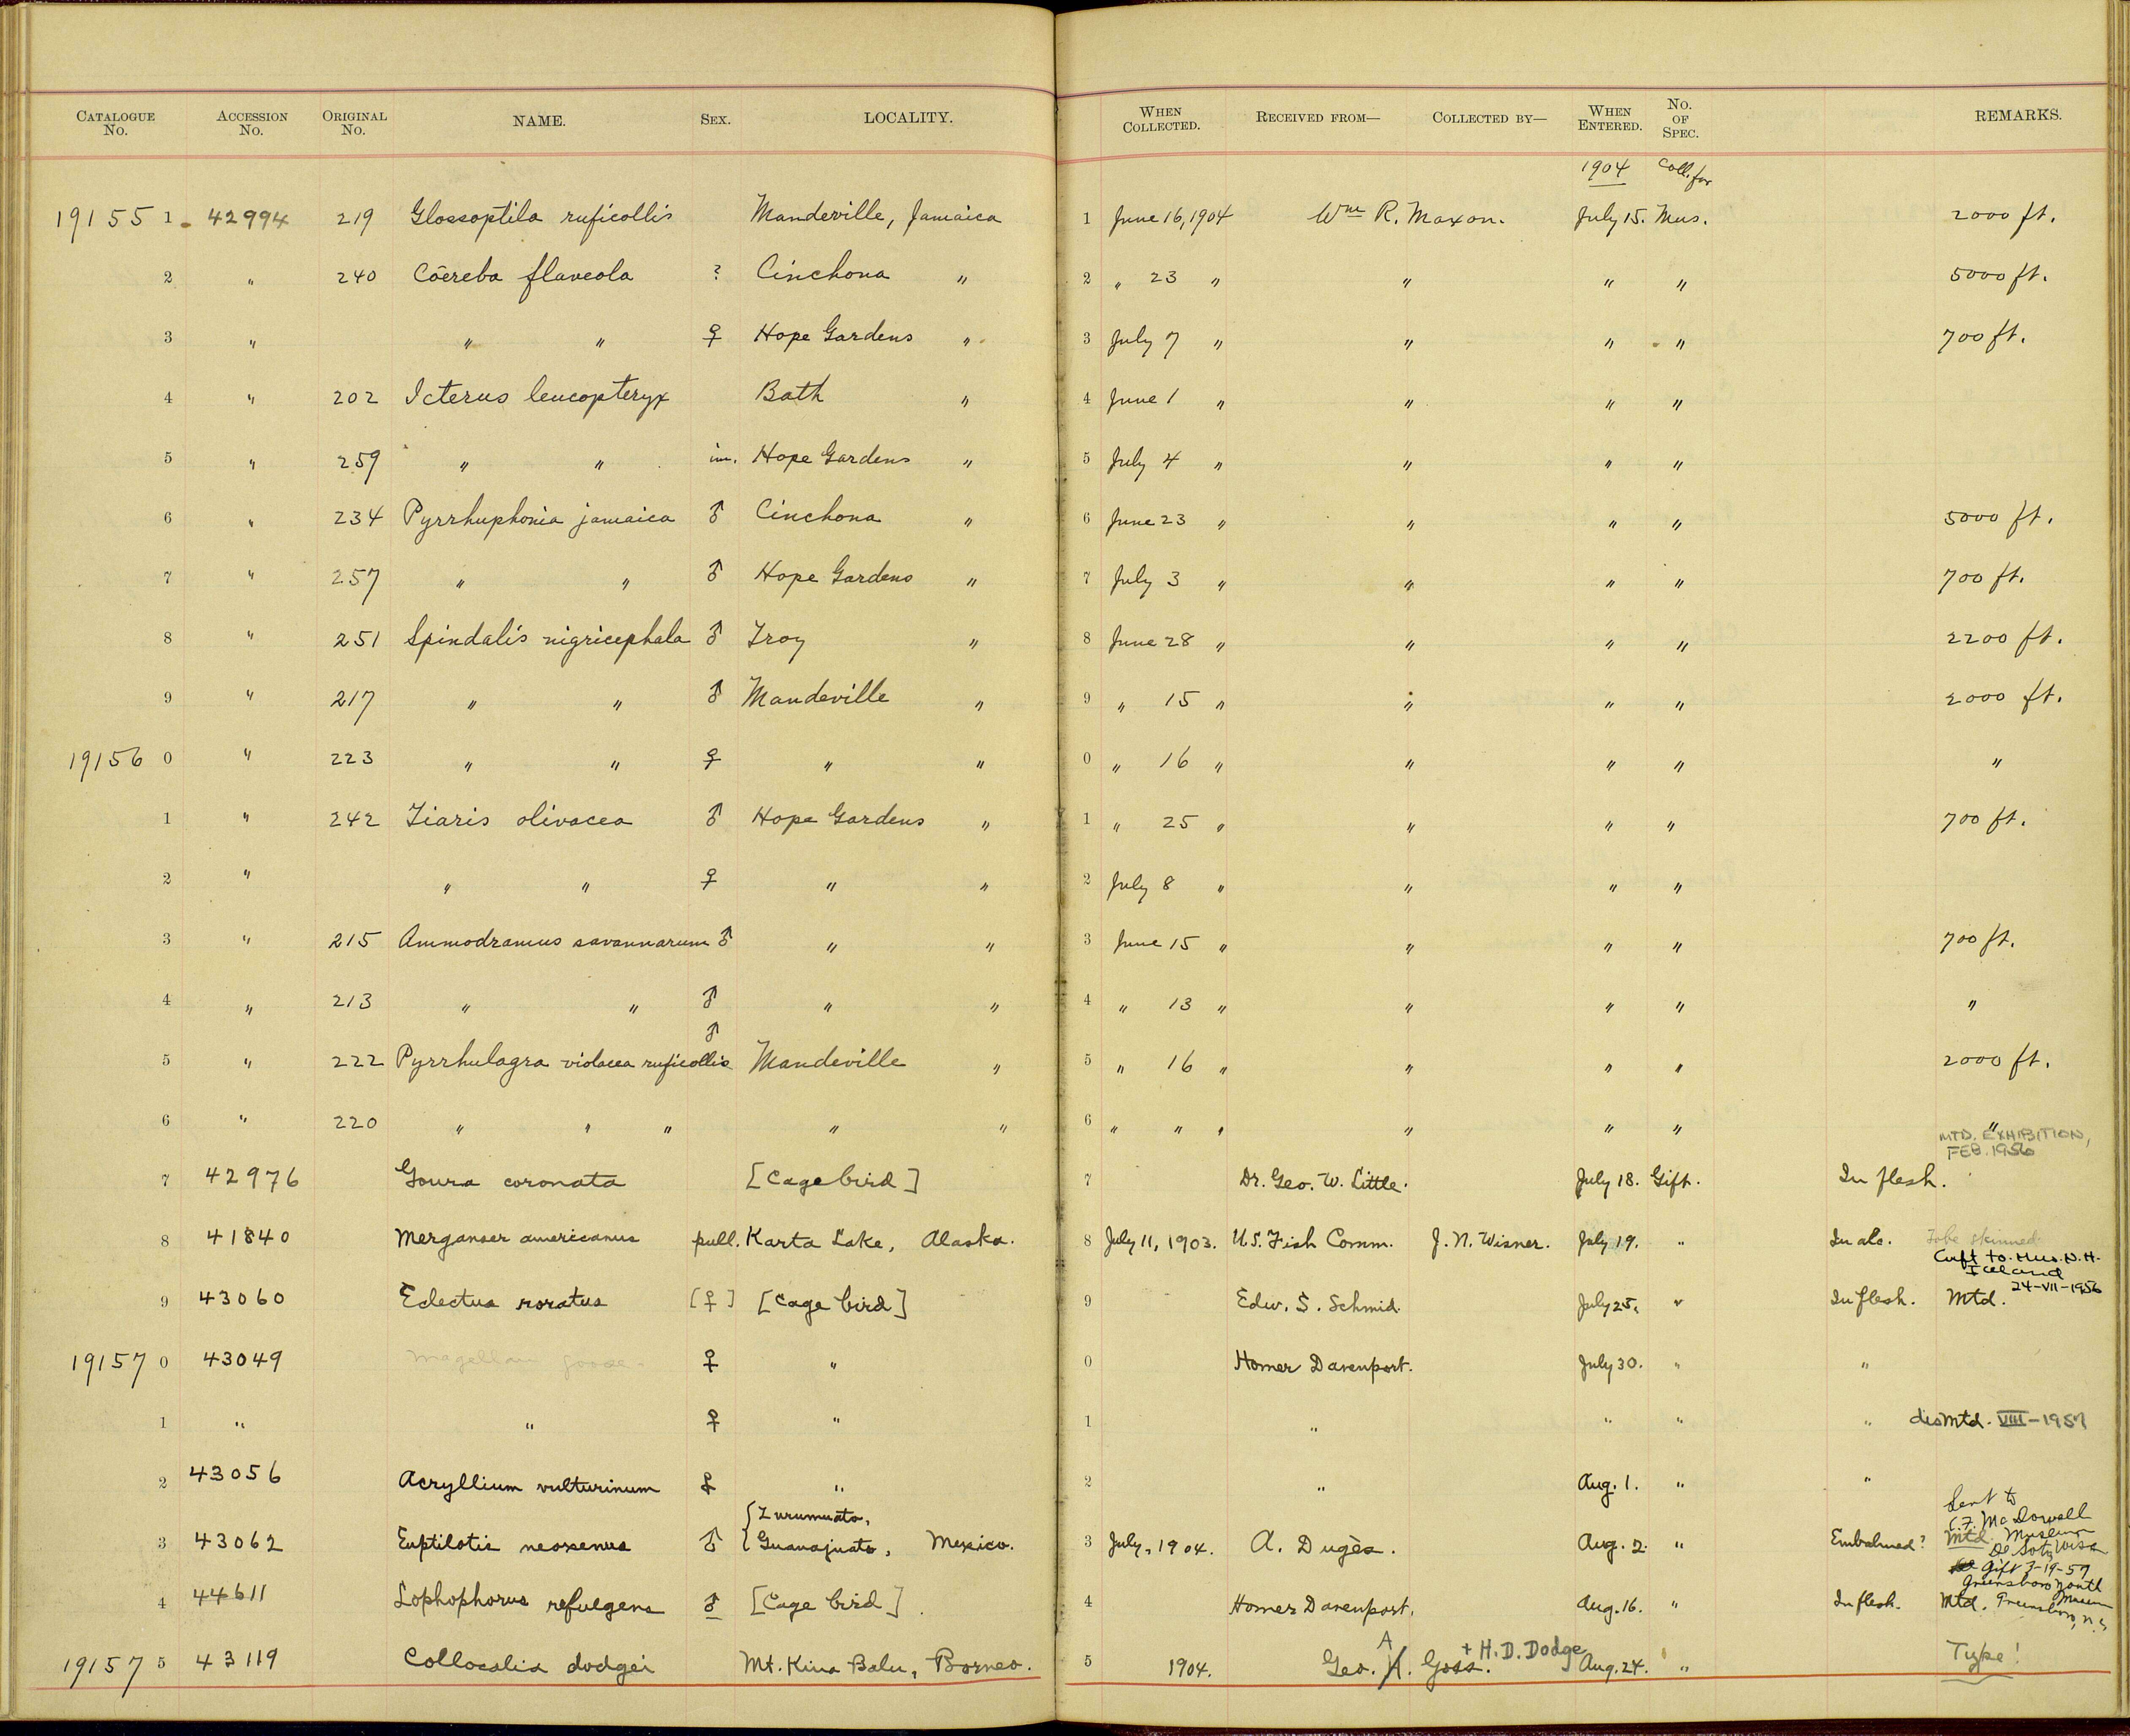 CATALOGUE No. ACCESSION No. ORIGINAL No. NAME. SEX. LOCALITY. WHEN COLLECTED. RECEIVED FROM— COLLECTED BY— WHEN ENTERED. No. OF SPEC. REMARKS.
1904 Coll. for
19155 1 42994 219 Glossoptila ruficollis Mandeville, Jamaica 1 June 16, 1904 Wm R. Maxon. July 15. Mus. 2000 ft.
2 " 240 Cöereba flaveola ? Cinchona " 2 " 23 " " " " 5000 ft.
3 " " " ♀ Hope Gardens " 3 July 7 " " " " 700 ft.
4 " 202 Icterus leucopteryx Bath " 4 June 1 " " " "
5 " 259 " " im. Hope Gardens " 5 July 4 " " " "
6 " 234 Pyrrhuphonia jamaica ♂ Cinchona " 6 June 23 " " " " 5000 ft.
7 " 257 " " ♂ Hope Gardens " 7 July 3 " " " " 700 ft.
8 " 251 Spindalis nigricephala ♂ Troy " 8 June 28 " " " " 2200 ft.
9 " 217 " " ♂ Mandeville " 9 " 15 " " " " 2000 ft.
19156 0 " 223 " " ♀ " " 0 " 16 " " " " "
1 " 242 Tiaris olivacea ♂ Hope Gardens " 1 " 25 " " " " 700 ft.
2 " " " ♀ " " 2 July 8 " " " "
3 " 215 Ammodramus savannarum ♂ " " 3 June 15 " " " " 700 ft.
4 " 213 " " ♂ " " 4 " 13 " " " " "
5 " 222 Pyrrhulagra violacea ruficollis ♂ Mandeville " 5 " 16 " " " " 2000 ft.
6 " 220 " " " " " 6 " " " " " " "
MTD. EXHIBITION,
FEB. 1956
7 42976 Goura coronata [Cage bird] 7 Dr. Geo. W. Little. July 18. Gift. In flesh.
8 41840 Merganser americanus pull. Karta Lake, Alaska. 8 July 11, 1903. U.S. Fish Comm. J. N. Wisner. July 19. " In alc. To be skinned
Gift to Mus. N. H.
Iceland
24-VII-1956
9 43060 Eclectus roratus [♀] [Cage bird] 9 Edw. S. Schmid. July 25. " In flesh. Mtd.
19157 0 43049 Magellan goose. ♀ " 0 Homer Davenport. July 30. " "
1 " " ♀ " 1 " " " " disMtd. VIII-1957
2 43056 Acryllium vulturinum ♀ " 2 " Aug. 1. " "
3 43062 Euptilotis neoxenus ♂ { Zurumuato, Guanajuato, Mexico. 3 July, 1904. A. Dugès. Aug. 2. " Embalmed? Mtd.
Sent to
McDowell
Museum
De Soto, Wisc
Gift 3-19-57
Greensboro Youth
Museum
Greensboro, N.C.
4 44611 Lophophorus refulgens ♂ [Cage bird]. 4 Homer Davenport. Aug. 16. " In flesh. Mtd.
19157 5 43119 Collocalia dodgei Mt. Kina Balu, Borneo. 5 1904. Geo. A. Goss. + H. D. Dodge Aug. 24. " Type!